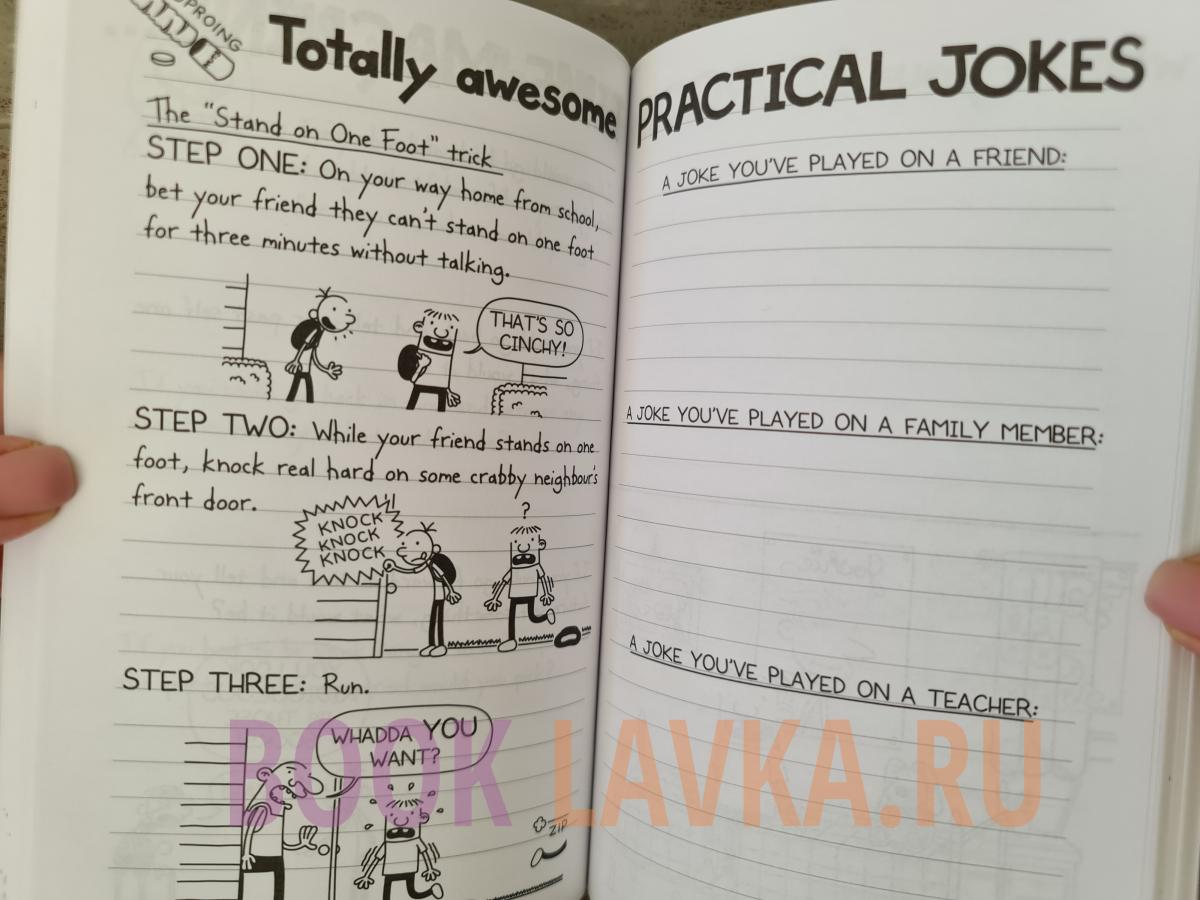 SPROING
Totally awesome
The "Stand on One Foot" trick
STEP ONE: On your way home from school,
bet your friend they can't stand on one foot
for three minutes without talking.
THAT'S SO
CINCHY!
STEP TWO: While your friend stands on one
foot, knock real hard on some crabby neighbour's
front door.
KNOCK
KNOCK
KNOCK
?
STEP THREE: Run.
WHADDA YOU
WANT?
ZIP
PRACTICAL JOKES
A JOKE YOU'VE PLAYED ON A FRIEND:
A JOKE YOU'VE PLAYED ON A FAMILY MEMBER:
A JOKE YOU'VE PLAYED ON A TEACHER:
BOOK LAVKA.RU